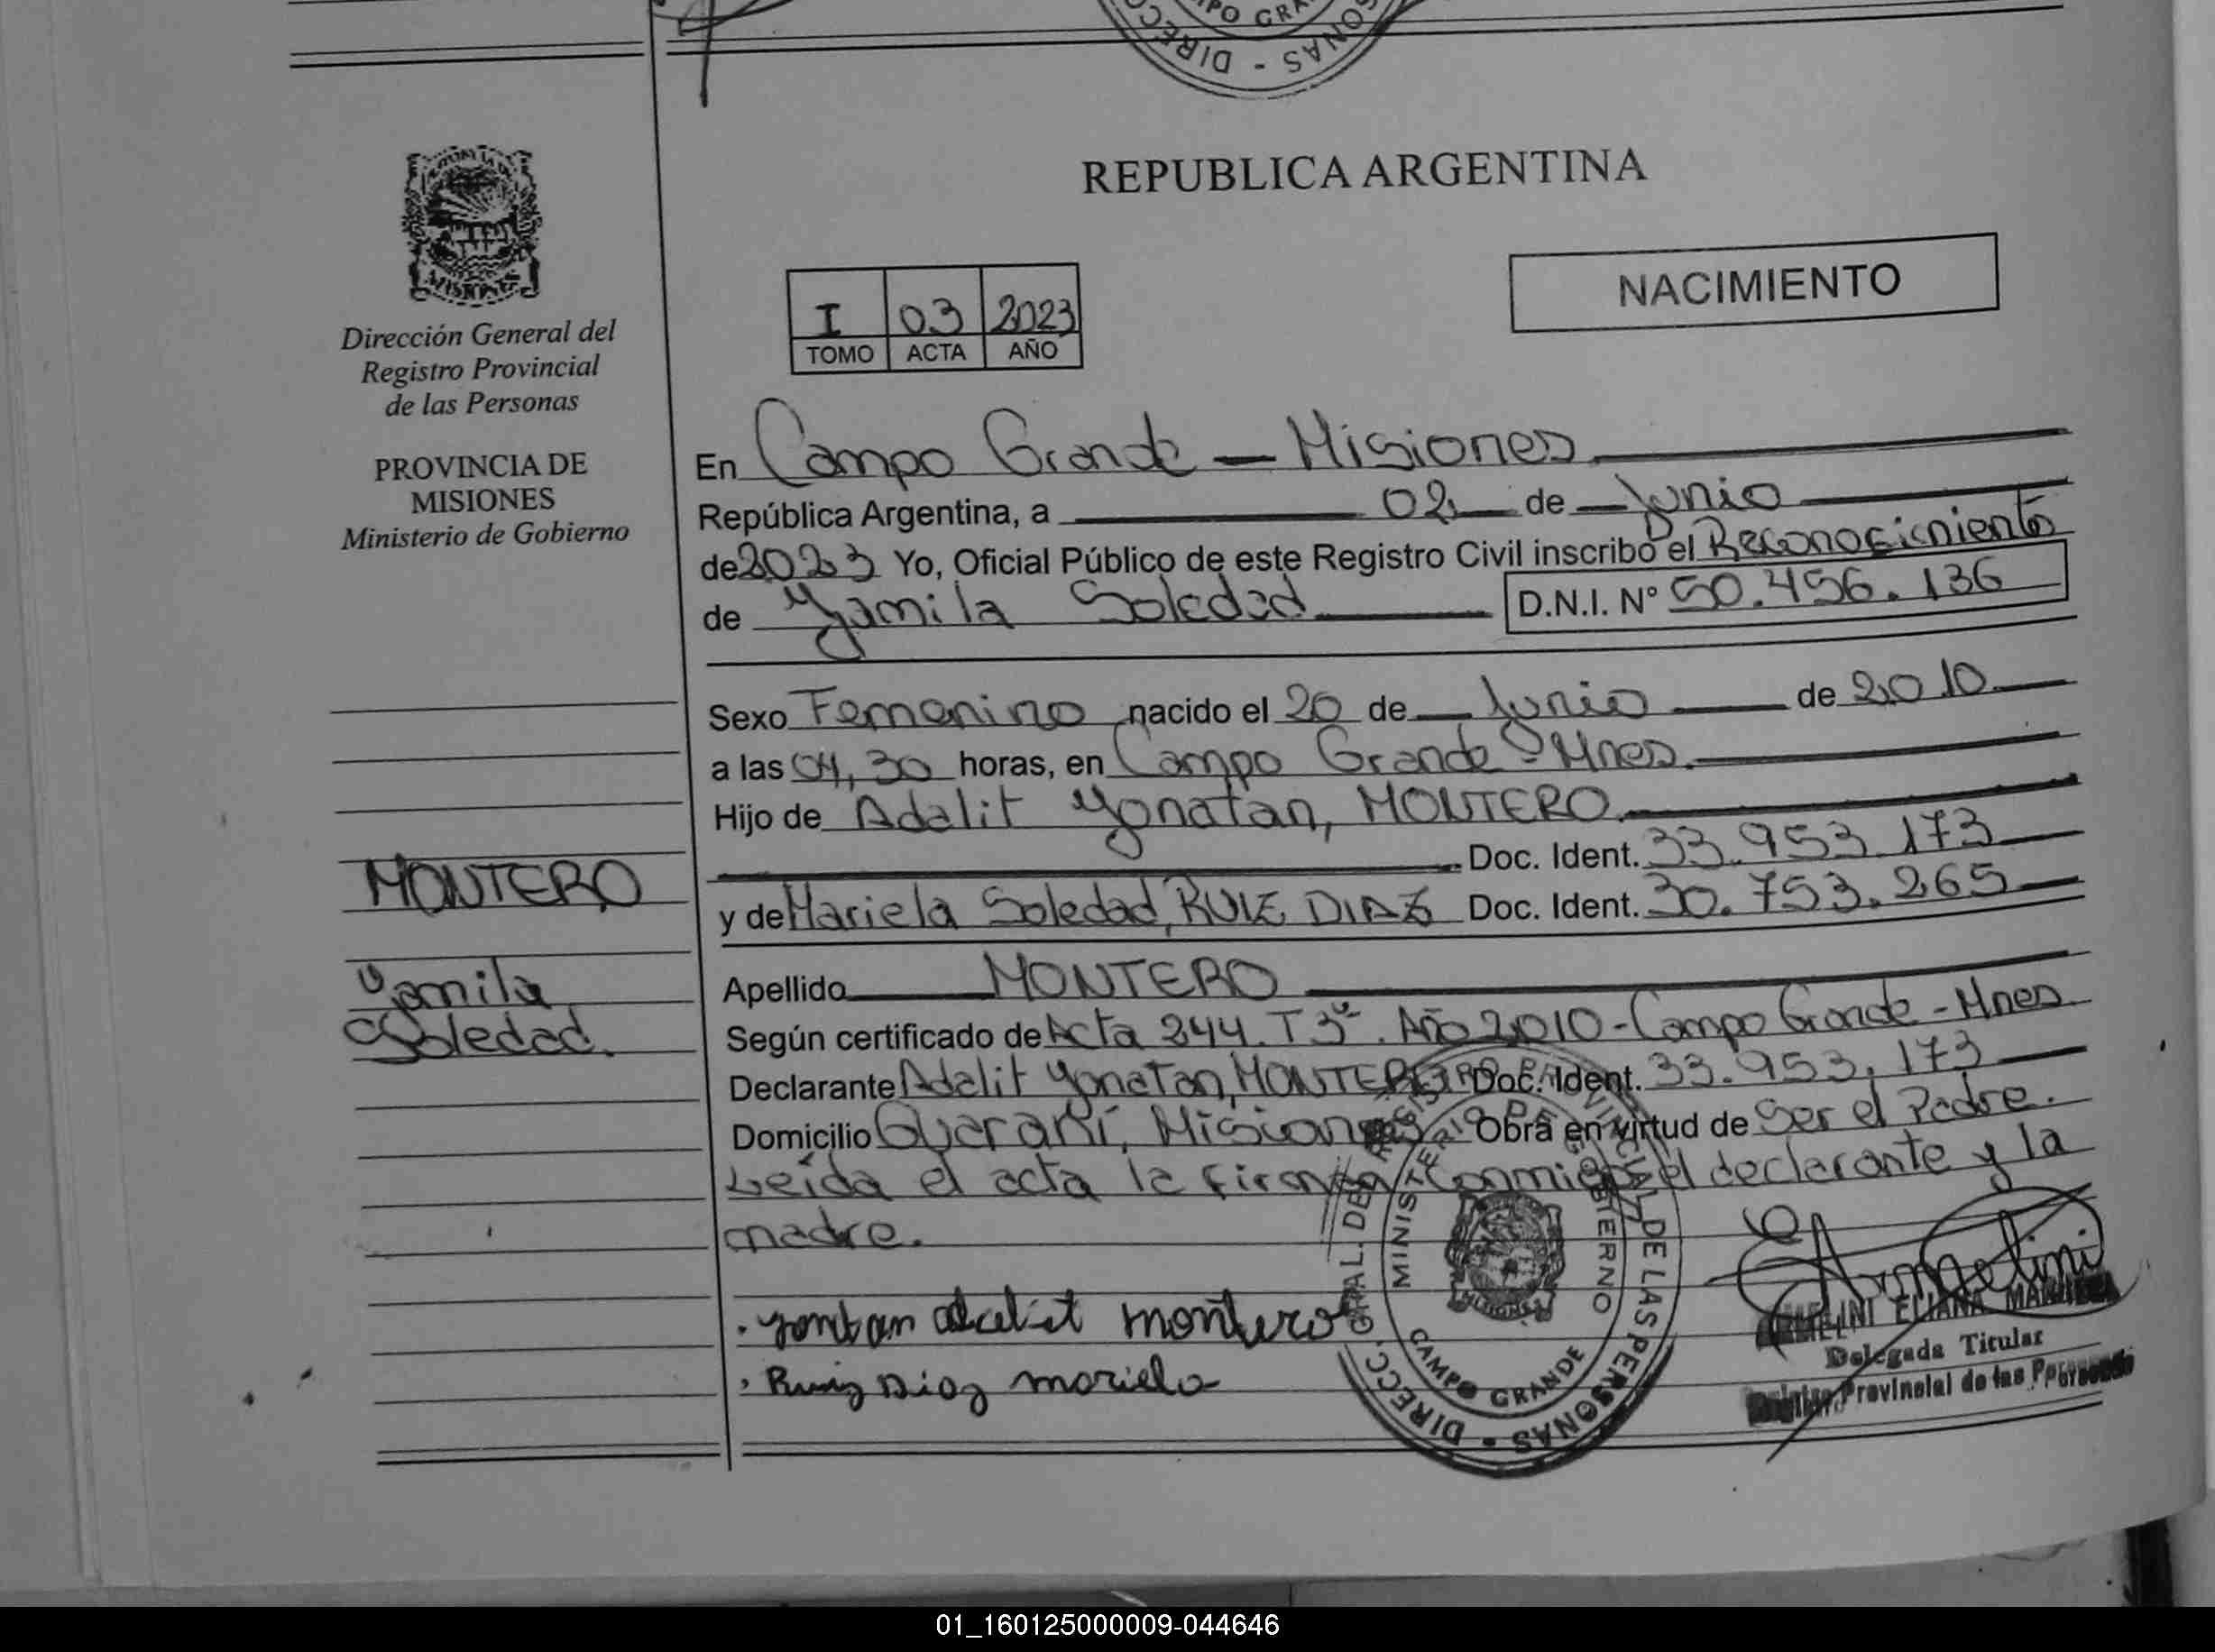 PO GRA
DIRECC
ONAS -
REPUBLICA ARGENTINA
NACIMIENTO
I 03 2023
TOMO ACTA AÑO
MISIONES
Dirección General del
Registro Provincial
de las Personas
PROVINCIA DE
MISIONES
Ministerio de Gobierno
MONTERO
Yamila
Soledad.
En Campo Grande — Misiones
República Argentina, a 02 de Junio
de 2023 Yo, Oficial Público de este Registro Civil inscribo el Reconocimiento
de Yamila Soledad D.N.I. N° 50.456.136
Sexo Femenino nacido el 20 de Junio de 2010
a las 04,30 horas, en Campo Grande - Mnes.
Hijo de Adalit Yonatan, MONTERO
Doc. Ident. 33.953.173
y de Mariela Soledad, RUIZ DIAZ Doc. Ident. 30.753.265
Apellido MONTERO
Según certificado de Acta 244. T3º. Año 2010 - Campo Grande - Mnes
Declarante Adalit Yonatan, MONTERO Doc. Ident. 33.953.173
Domicilio Guaraní, Misiones Obra en virtud de Ser el Padre.
Leída el acta la firman Conmigo el declarante y la
madre.
. yonatan adalit montero
. Ruiz Diaz mariela
DIRECC. GRAL. DEL REGISTRO PROVINCIAL DE LAS PERSONAS -
MINISTERIO DE GOBIERNO
CAMPO GRANDE
ELIANA
Delegada Titular
Provincial de las Personas
01_160125000009-044646